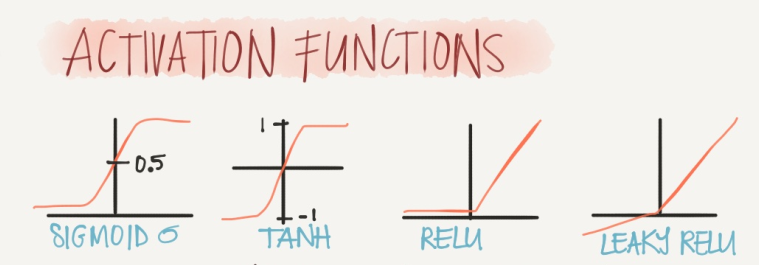 ACTIVATION FUNCTIONS
0.5
1
-1
SIGMOID σ
TANH
RELU
LEAKY RELU